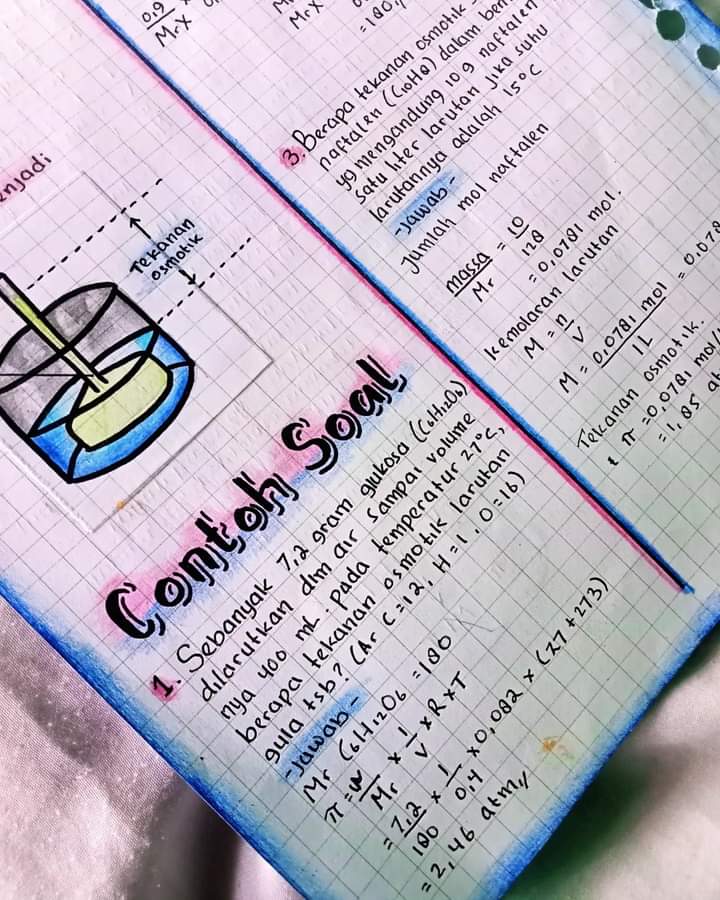 enjadi
Tekanan
osmotik
Contoh Soal
1. Sebanyak 7,2 gram glukosa (C6H12O6)
dilarutkan dlm air sampai volume
nya 400 mL. pada temperatur 27°C,
berapa tekanan osmotik larutan
gula tsb? (Ar C=12, H=1, O=16)
-Jawab-
Mr C6H12O6 = 180
π = w/Mr × 1/V × R × T
= 7,2/180 × 1/0,4 × 0,082 × (27 + 273)
= 2,46 atm//
0,9
MrX
MrX
= 180//
3. Berapa tekanan osmotik
naftalen (C10H8) dalam ben
yg mengandung 10 g naftalen
satu liter larutan jika suhu
larutannya adalah 15°C
-Jawab-
Jumlah mol naftalen
massa/Mr = 10/128
= 0,0781 mol.
kemolaran larutan
M = n/V
M = 0,0781 mol/1L = 0,078
Tekanan osmotik.
π = 0,0781 mol/
= 1,85 at